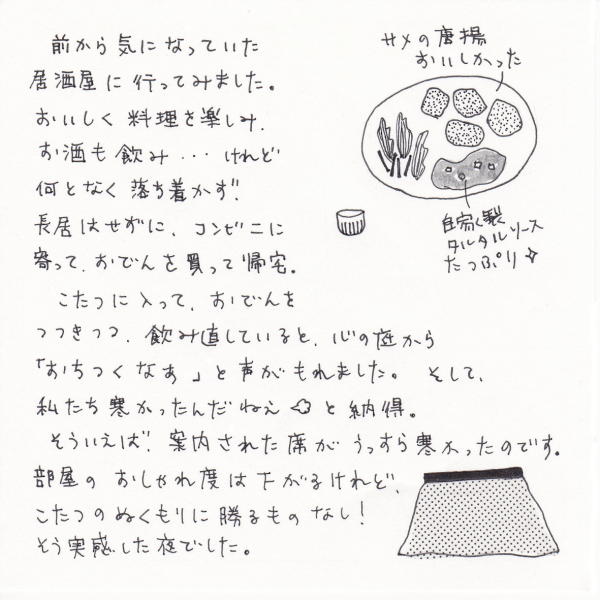 前から気になっていた
居酒屋に行ってみました。
おいしく料理を楽しみ、
お酒も飲み...けれど
何となく落ち着かず、
長居はせずに、コンビニに
寄って、おでんを買って帰宅。
こたつに入って、おでんを
つつきつつ、飲み直していると、心の底から
「おちつくなぁ」と声がもれました。そして、
私たち寒かったんだねぇと納得。
そういえば、案内された席がうっすら寒かったのです。
部屋のおしゃれ度は下がるけれど、
こたつのぬくもりに勝るものなし!
そう実感した夜でした。
サメの唐揚
おいしかった
自家製
タルタルソース
たっぷり